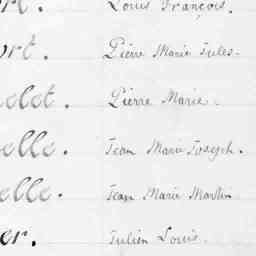 ort. Louis François.
ort. Pierre Marie Jules.
elet. Pierre Marie.
elle. Jean Marie Joseph.
elle. Jean Marie Martin
er. Julien Louis.